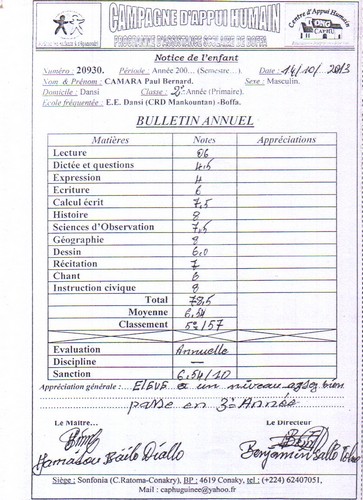 CAMPAGNE D'APPUI HUMAIN
PROGRAMME D'ASSISTANCE SCOLAIRE DE BOFFA
Centre d'Appui Humain
ONG
CAPHU
Notice de l'enfant
Numéro : 20930. Période : Année 200… (Semestre…). Date : 14/10/2013
Nom & Prénom : CAMARA Paul Bernard. Sexe : Masculin.
Domicile : Dansi Classe : 2e Année (Primaire).
Ecole fréquentée : E.E. Dansi (CRD Mankountan) -Boffa.
BULLETIN ANNUEL
Matières Notes Appréciations
Lecture 06
Dictée et questions 4,5
Expression 4
Ecriture 6
Calcul écrit 7,5
Histoire 8
Sciences d'Observation 7,5
Géographie 8
Dessin 6,0
Récitation 7
Chant 6
Instruction civique 8
Total 78,5
Moyenne 6,54
Classement 5e/57
Evaluation Annuelle
Discipline —
Sanction 6,54/10
Appréciation générale : Elève a un niveau assez bien
passe en 3e Année
Le Maître… Le Directeur
Mamadou Baïlo Diallo Benjamin
Siège : Sonfonia (C.Ratoma-Conakry), BP : 4619 Conaky, tel : (+224) 62407051,
Mail : caphuguinee@yahoo.fr